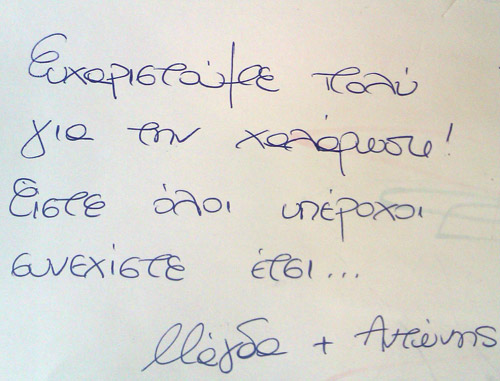 Ευχαριστούμε πολύ
για την χαλάρωση!
Είστε όλοι υπέροχοι
συνεχίστε έτσι...
Μάγδα + Αντώνης